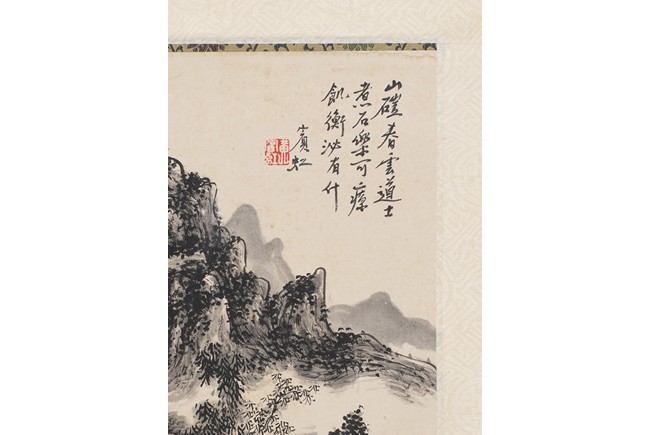 山礁春雲道士
煮石樂可療
飢衡泌有什
賓虹